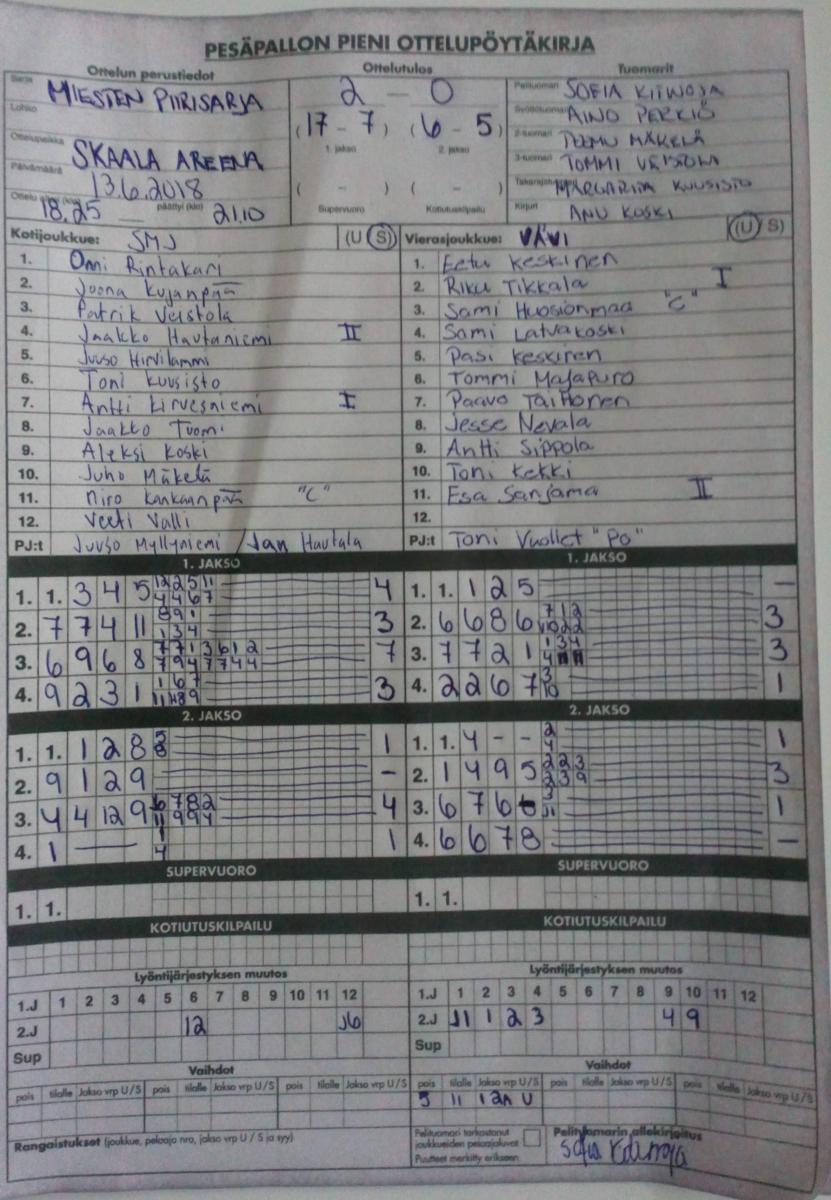 PESÄPALLON PIENI OTTELUPÖYTÄKIRJA
Ottelun perustiedot Ottelutulos Tuomarit
Sarja MIESTEN PIIRISARJA 2 - 0 Pelituomari SOFIA
Lohko AINO PERKIÖ
(17 - 7) (6 - 5) 2-tuomari TUOMU MÄKELÄ
Ottelupaikka SKAALA AREENA 1. jakso 2. jakso 3-tuomari TOMMI
Päivämäärä 13.6.2018 ( - ) ( - ) MARGARITA KUUSISTO
18.25 päättyi (klo) 21.10 Supervuoro Kotiutuskilpailu Kirjuri ANU KOSKI
Kotijoukkue: SMJ (U S) Vierasjoukkue: VÄVI (U S)
1. Onni Rintakari 1. Eetu Keskinen
2. Joona Kujanpää 2. Riku Tikkala I
3. Patrik Veistola 3. Sami Huosionmaa "C"
4. Jaakko Hautaniemi II 4. Sami Latvakoski
5. Juuso Hirvilammi 5. Pasi Keskinen
6. Toni Kuusisto 6. Tommi Majapuro
7. Antti Kirvesniemi I 7. Paavo
8. Jaakko Tuomi 8. Jesse Nevala
9. Aleksi Koski 9. Antti Sippola
10. Juho Mäkelä 10. Toni Kekki
11. Niro Kankaanpää "C" 11. Esa Sanjama II
12. Veeti Valli 12.
PJ:t Juuso Myllyniemi / Jan Hautala PJ:t Toni Vuollet "PO"
1. JAKSO 1. JAKSO
1. 1. 3 4 5 12 2 5 11 4 4 6 7 4 1. 1. 1 2 5 -
2. 7 7 4 11 8 9 1 1 3 4 3 2. 6 6 8 6 7 1 2 10 2 2 3
3. 6 9 6 8 7 7 1 3 6 1 2 7 9 4 7 7 4 4 7 3. 7 7 2 1 1 3 4 4 3
4. 9 2 3 1 1 6 7 3 4. 2 2 6 7 3 10 1
2. JAKSO 2. JAKSO
1. 1. 1 2 8 1 1. 1. 4 - - 2 4 1
2. 9 1 2 9 - 2. 1 4 9 5 2 2 3 2 3 9 3
3. 4 4 12 9 6 7 8 2 11 9 9 4 4 3. 6 7 6 3 11 1
4. 1 — 1 4 1 4. 6 6 7 8 -
SUPERVUORO SUPERVUORO
1. 1. 1. 1.
KOTIUTUSKILPAILU KOTIUTUSKILPAILU
Lyöntijärjestyksen muutos Lyöntijärjestyksen muutos
1.J 1 2 3 4 5 6 7 8 9 10 11 12 1.J 1 2 3 4 5 6 7 8 9 10 11 12
2.J 12 2.J 11 1 2 3 4 9
Sup Sup
Vaihdot Vaihdot
pois tilalle Jakso vrp U/S pois tilalle Jakso vrp U/S pois tilalle Jakso vrp U/S pois tilalle Jakso vrp U/S pois tilalle Jakso vrp U/S pois tilalle Jakso vrp U/S
5 11 U
Rangaistukset (joukkue, pelaaja nro, jakso vrp U / S ja syy) Pelituomari tarkastanut Pelituomarin allekirjoitus
joukkueiden pelaajaluvat Sofia
Puutteet merkitty erikseen